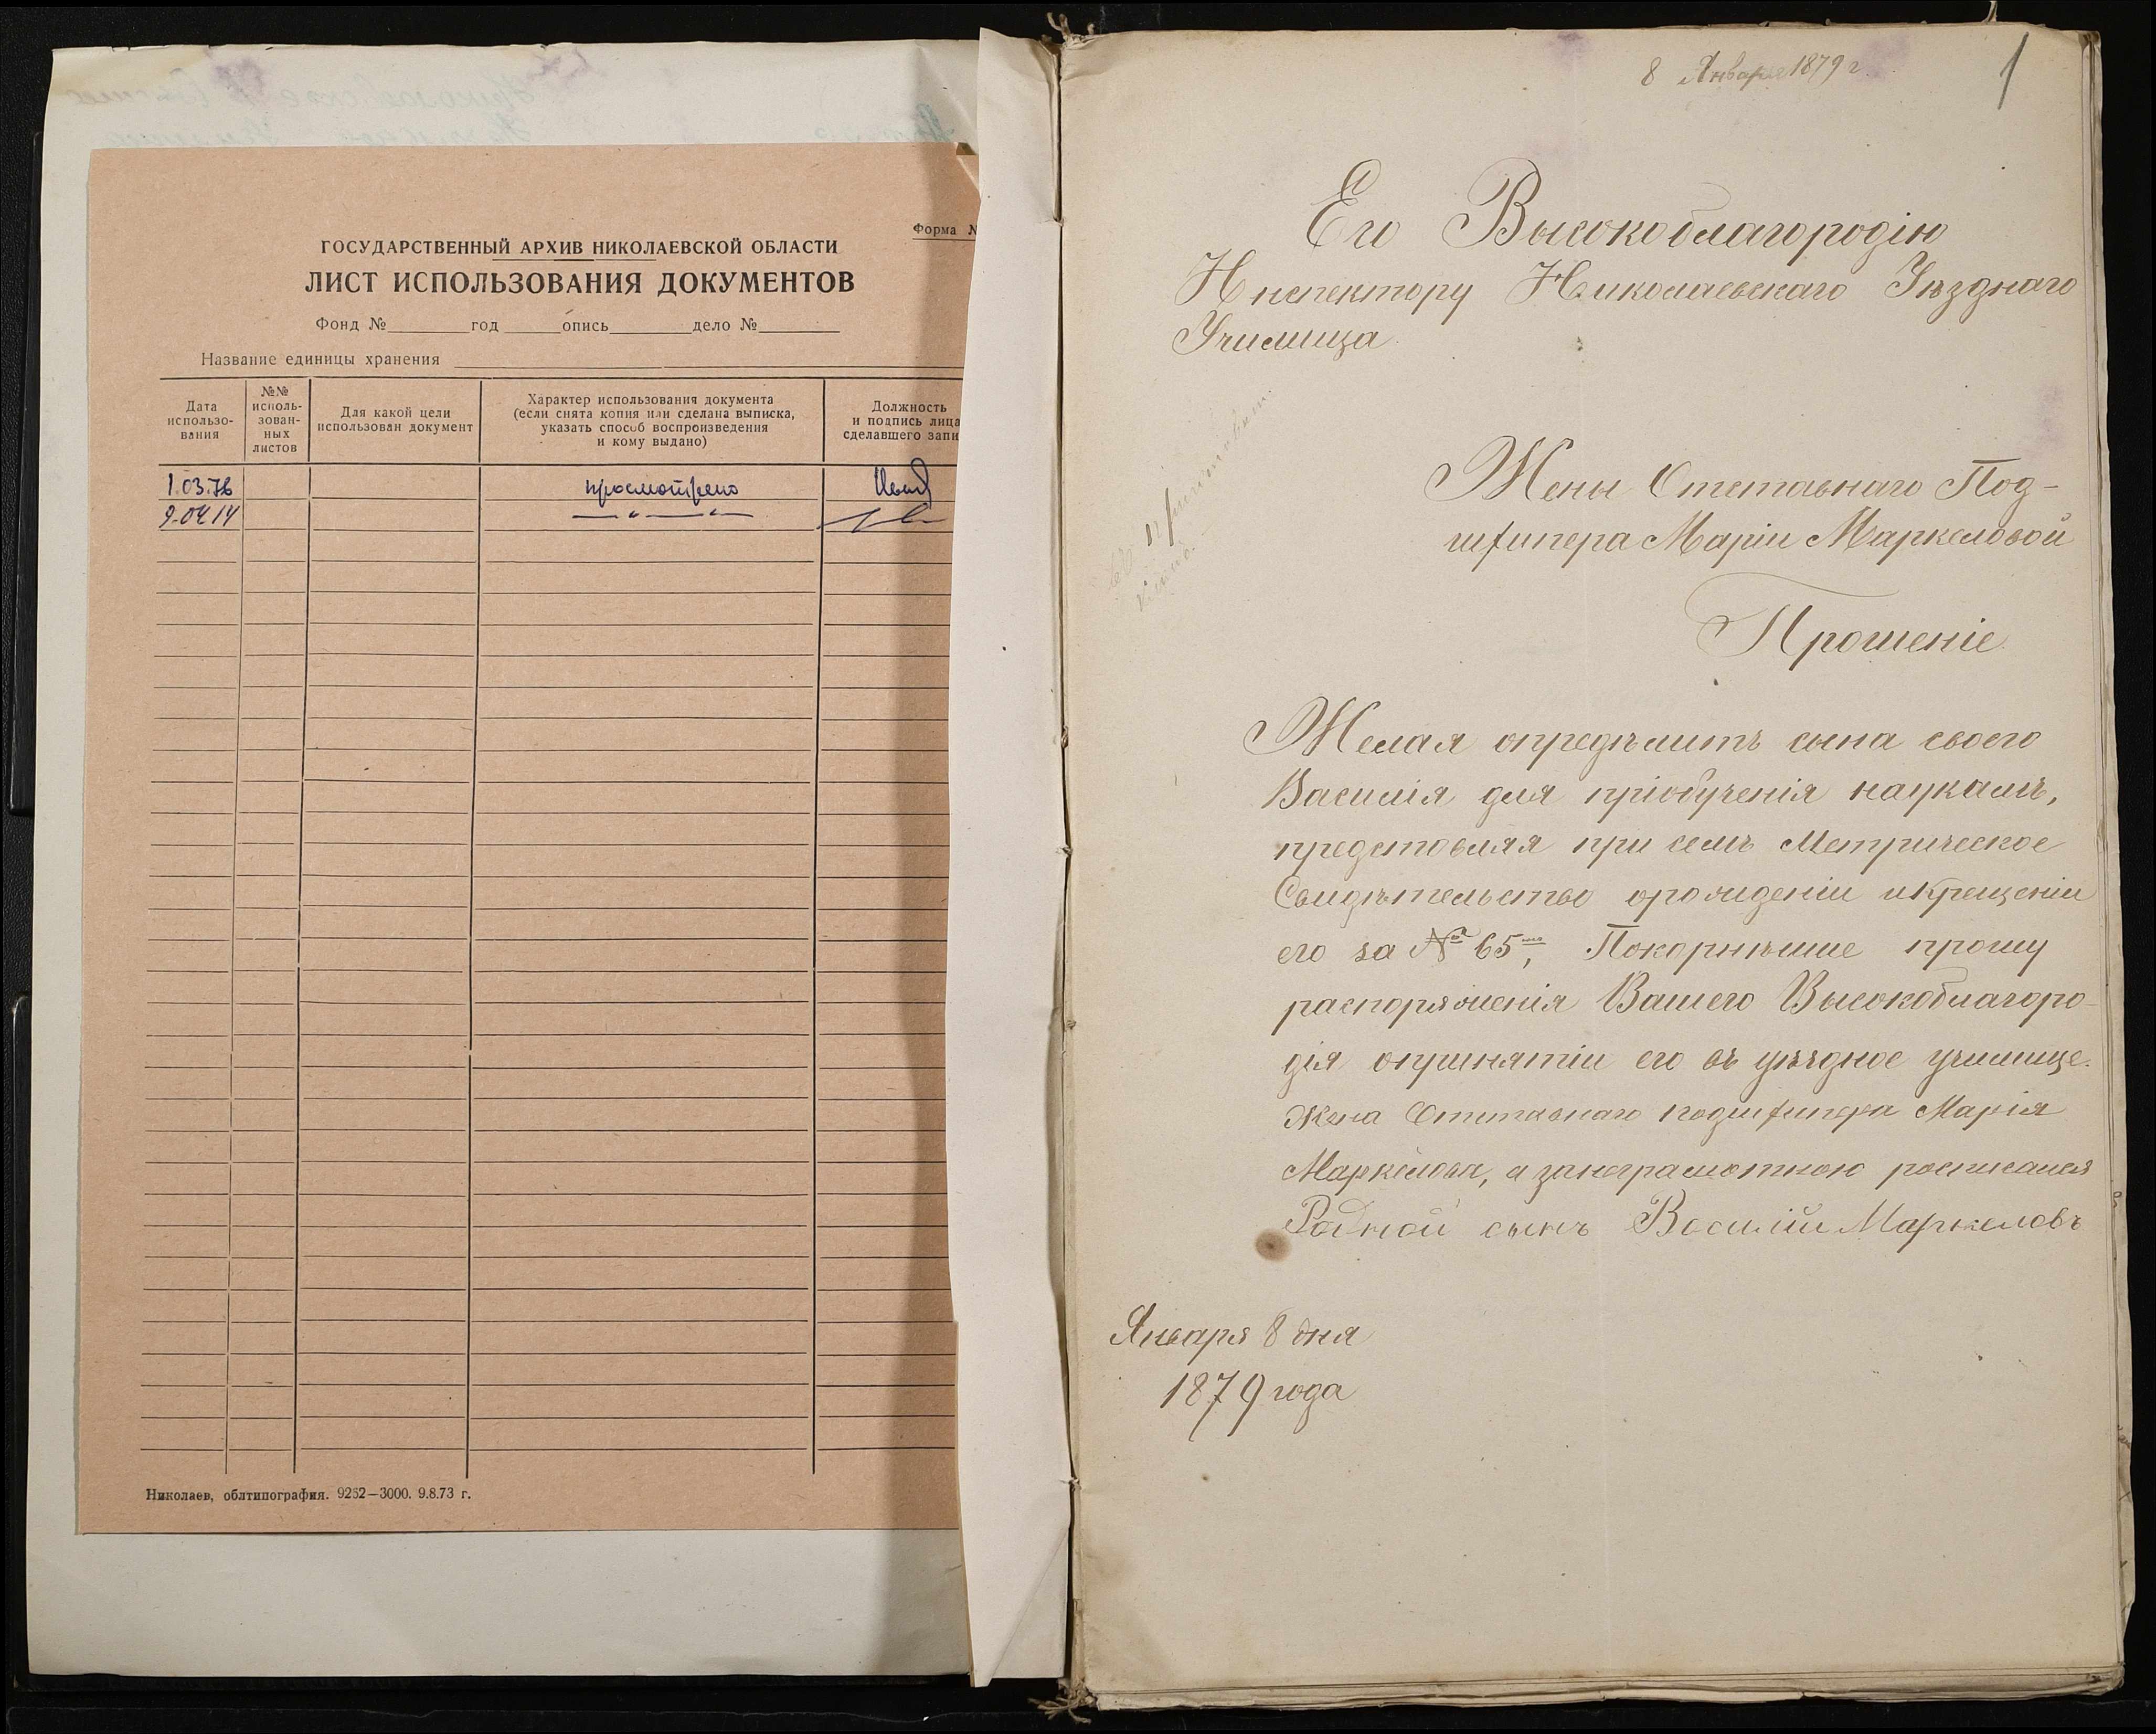 Форма №
ГОСУДАРСТВЕННЫЙ АРХИВ НИКОЛАЕВСКОЙ ОБЛАСТИ
ЛИСТ ИСПОЛЬЗОВАНИЯ ДОКУМЕНТОВ
Фонд № год опись дело №
Название единицы хранения
Дата использо-
вания
№№
исполь-
зован-
ных
листов
Для какой цели
использован документ
Характер использования документа
(если снята копия или сделана выписка,
указать способ воспроизведения
и кому выдано)
Должность
и подпись лица
сделавшего запи
1.03.76 просмотрено
9.04.14 — " — " —
Николаев, облтипография. 9252—3000. 9.8.73 г.
8 Января 1879 г.
1
Его Высокоблагородію
Инспектору Николаевскаго Уѣзднаго
Училища
Жены Отставнаго Под-
шкипера Маріи Маркеловой
Прошеніе
Желая опредѣлить сына своего
Василія для пріобученія наукамъ,
представляя при семъ Метрическое
Свидѣтельство орожденіи икрещеніи
его за № 65, Покорнѣише прошу
распоряженія Вашего Высокоблагоро-
дія опринятіи его въ уѣздное училище.
Жена Отставнаго подшкипера Марія
Маркелова, а занеграмотною росписался
Родной сынъ Василій Маркеловъ
Января 8 дня
1879 года